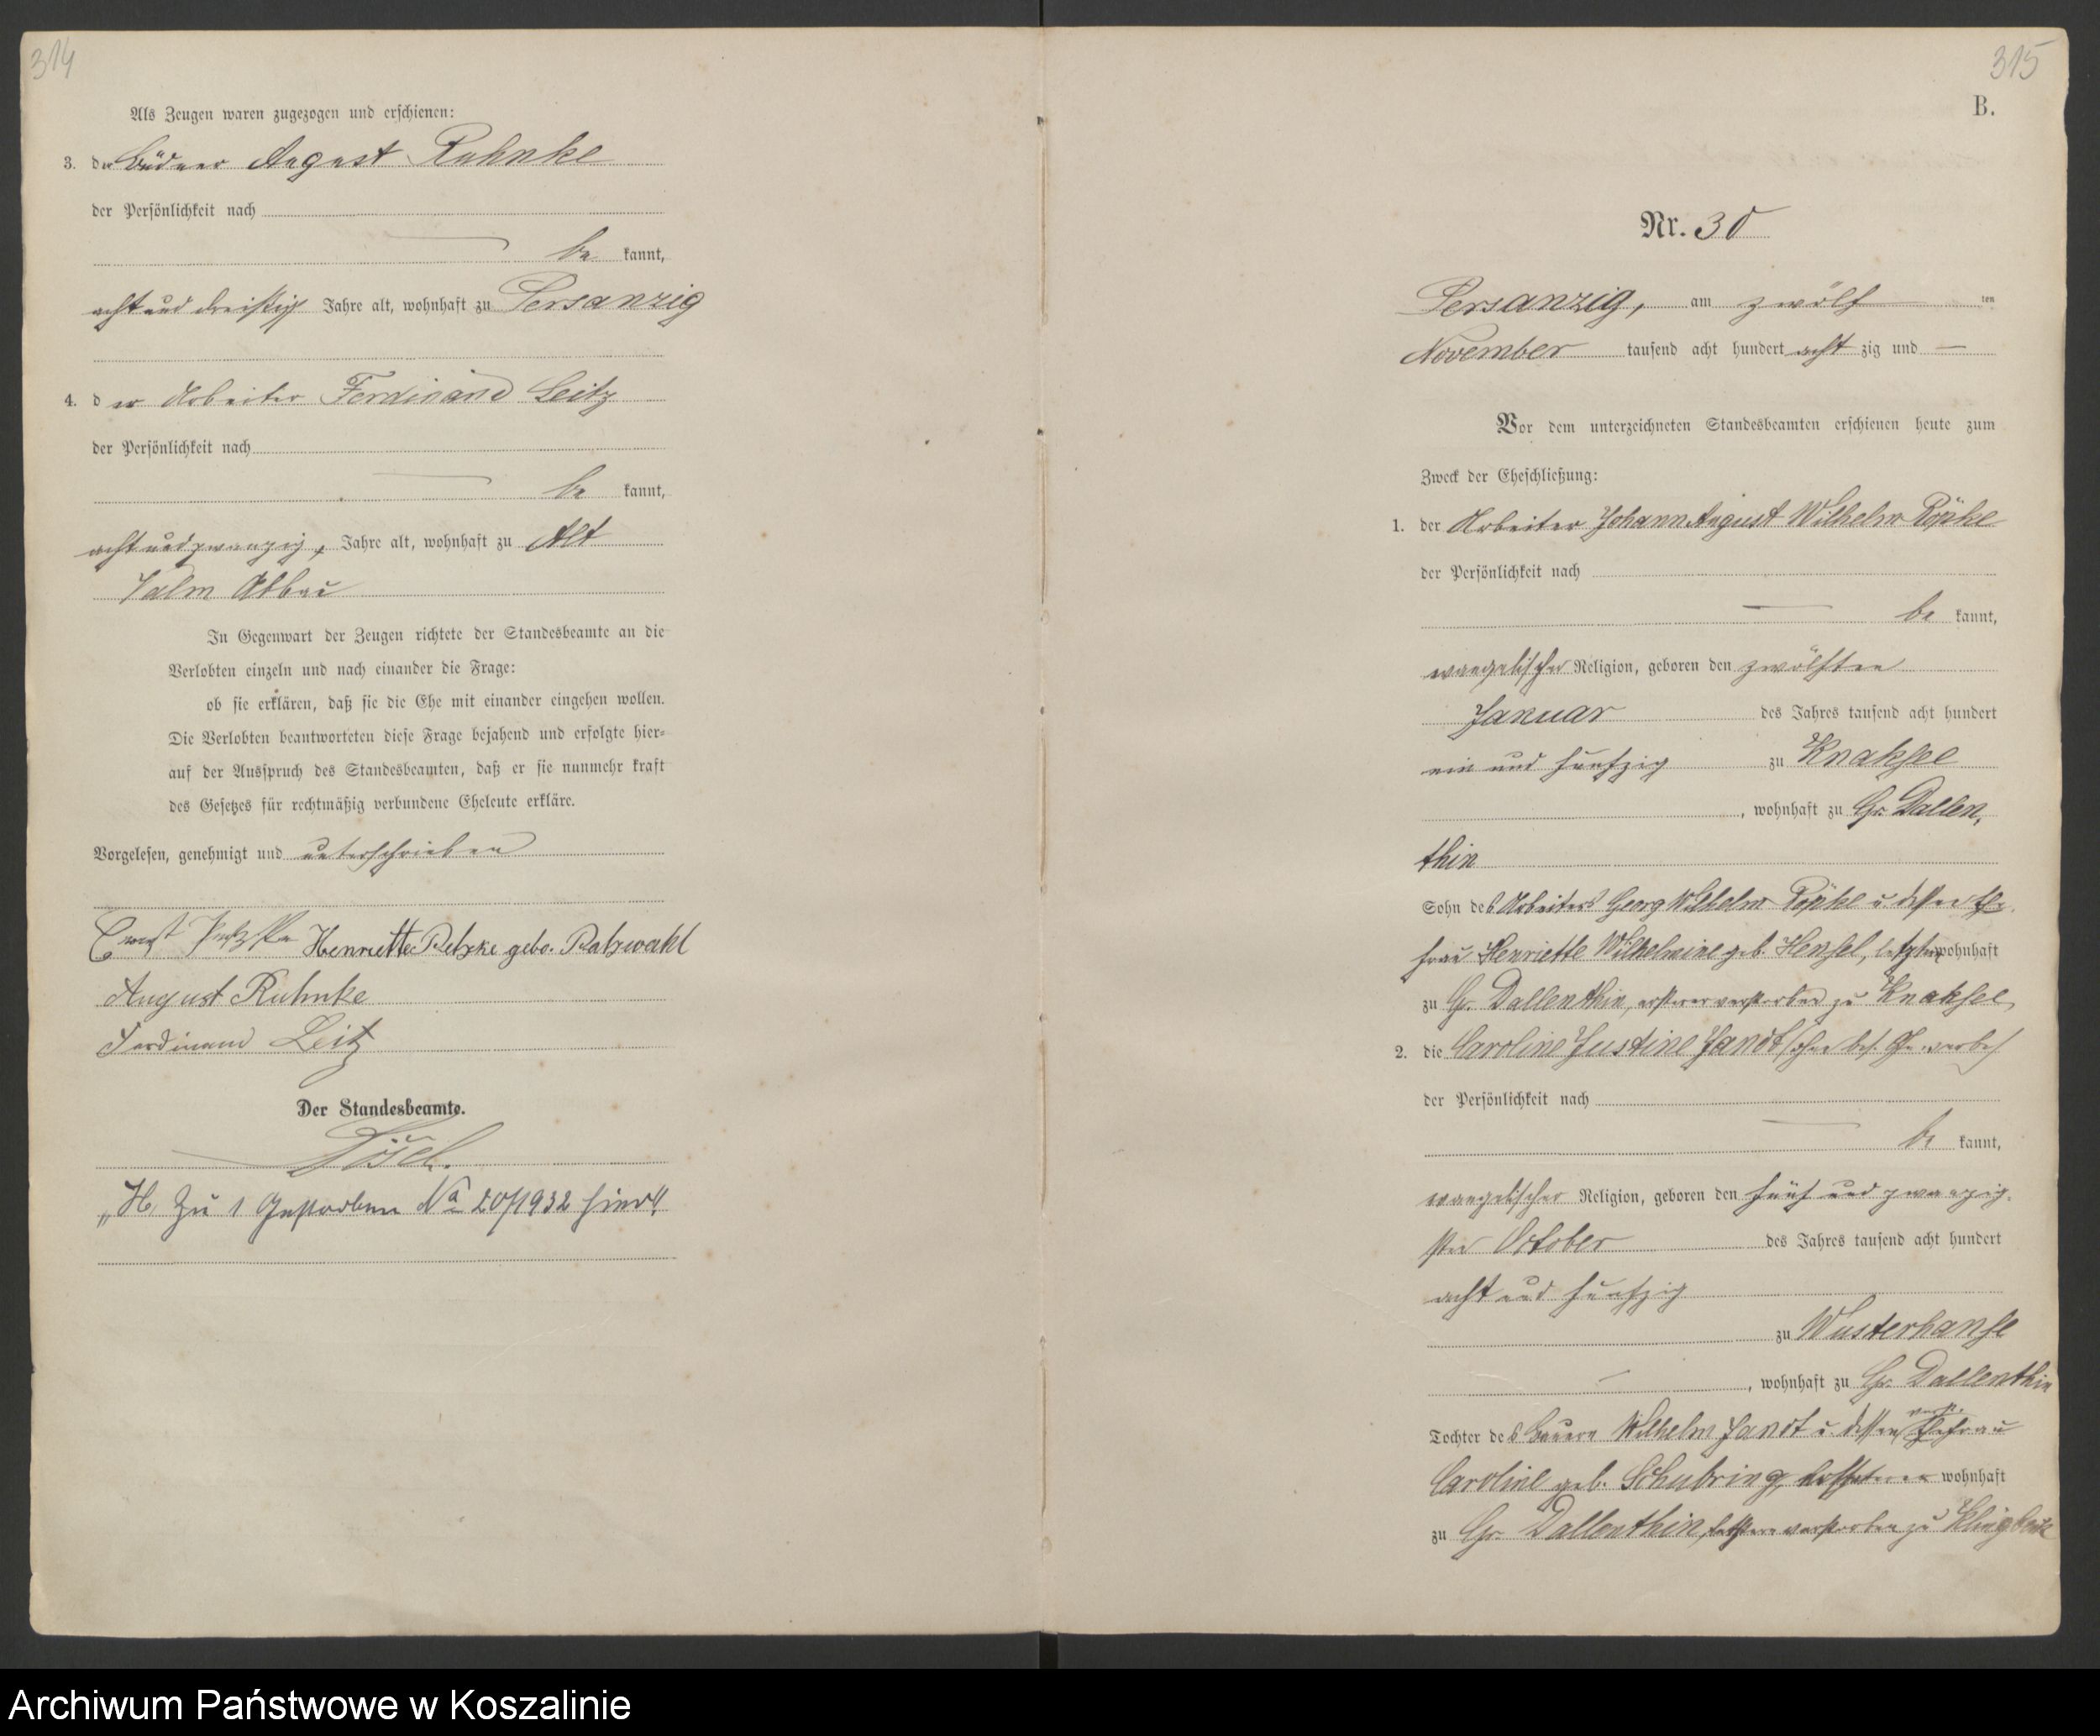 314
Als Zeugen waren zugezogen und erschienen:
3. der Büdner August Ruhnke
der Persönlichkeit nach
be kannt,
acht und dreißig Jahre alt, wohnhaft zu Persanzig
4. der Arbeiter Ferdinand Leitz
der Persönlichkeit nach
be kannt,
acht und zwanzig, Jahre alt, wohnhaft zu Alt
Valm Abbau
In Gegenwart der Zeugen richtete der Standesbeamte an die
Verlobten einzeln und nach einander die Frage:
ob sie erklären, daß sie die Ehe mit einander eingehen wollen.
Die Verlobten beantworteten diese Frage bejahend und erfolgte hier=
auf der Ausspruch des Standesbeamten, daß er sie nunmehr kraft
des Gesetzes für rechtmäßig verbundene Eheleute erkläre.
Vorgelesen, genehmigt und unterschrieben
Ernst Henriette Retzke gebo. Ratzwahl
August Ruhnke
Ferdinand Leitz
Der Standesbeamte.
„H. Zu 1 Gestorben No 20/1932 hier"
315
B.
Nr. 30
Persanzig, am zwölf ten
November tausend acht hundert acht zig und —
Vor dem unterzeichneten Standesbeamten erschienen heute zum
Zweck der Eheschließung:
1. der Arbeiter Johann August Wilhelm Röpke
der Persönlichkeit nach
be kannt,
evangelischer Religion, geboren den zwölften
Januar des Jahres tausend acht hundert
ein und funfzig zu Knaksee
, wohnhaft zu Gr. Dallen,
thin
Sohn des Arbeiters Georg Wilhelm Röpke u. dessen Ehe,
frau Henriette Wilhelmine geb. Hensel, letztere wohnhaft
zu Gr. Dallenthin, ersterer verstorben zu Knaksee
2. die Caroline Justine Jandt (ohne bes. Gewerbe)
der Persönlichkeit nach
be kannt,
evangelischer Religion, geboren den fünf und zwanzig,
sten October des Jahres tausend acht hundert
acht und funfzig
zu Wusterhanse
, wohnhaft zu Gr. Dallenthin
Tochter des Bauern Wilhelm Jandt u. dessen verst. Ehefrau
Caroline geb. Schubring, ersterer wohnhaft
zu Gr. Dallenthin, letztere verstorben zu Klingbeck